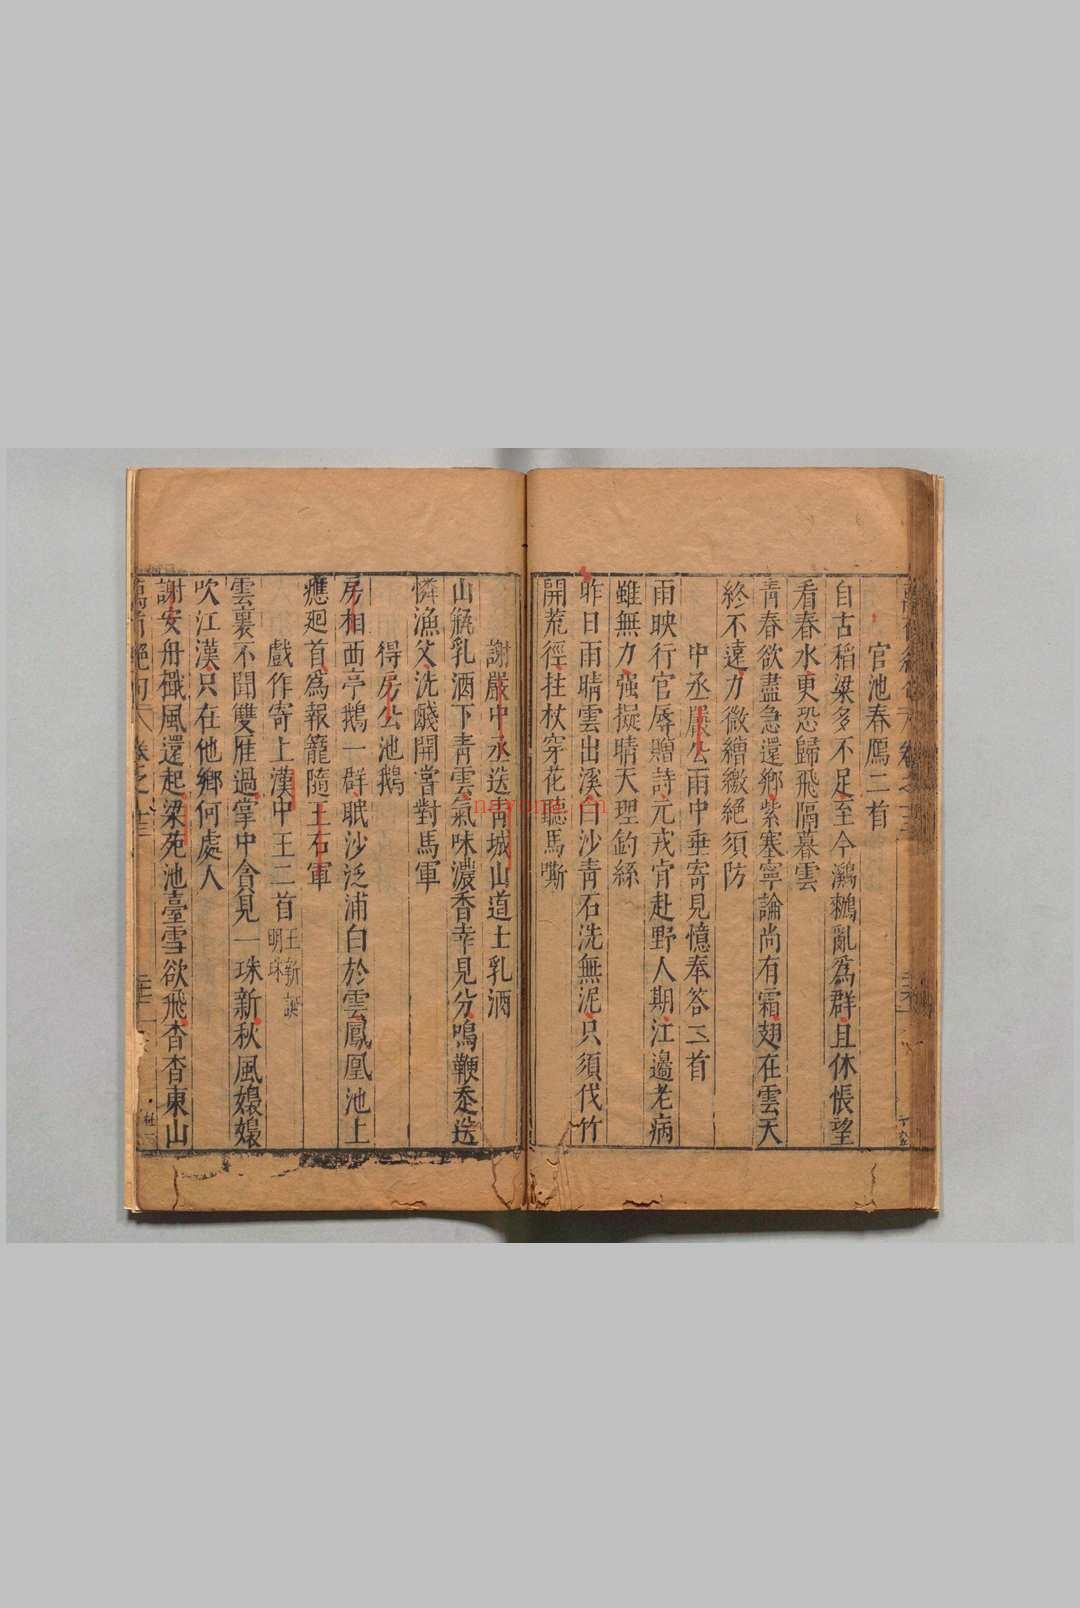 官池春鴈二首
自古稻粱多不足至今鸂鶒亂為群且休悵望
看春水更恐歸飛隔暮雲
青春欲盡急還鄉紫塞寧論尚有霜翅在雲天
終不遠力微繒繳絕須防
中丞嚴公雨中垂寄見憶奉答二首
雨映行官辱贈詩元戎肯赴野人期江邊老病
雖無力強擬晴天理釣絲
昨日雨晴雲出溪白沙青石洗無泥只須伐竹
開荒徑拄杖穿花聽馬嘶
謝嚴中丞送青城山道士乳酒
山瓶乳酒下青雲氣味濃香幸見分鳴鞭走送
憐漁父洗醆開嘗對馬軍
得房公池鵝
房相西亭鵝一群眠沙泛浦白於雲鳳凰池上
應廻首為報籠隨王右軍
戲作寄上漢中王二首王新誕明珠
雲裏不聞雙雁過掌中貪見一珠新秋風嫋嫋
吹江漢只在他鄉何處人
謝安舟檝風還起梁苑池臺雪欲飛杳杳東山
萬首絕句
nayong.cn